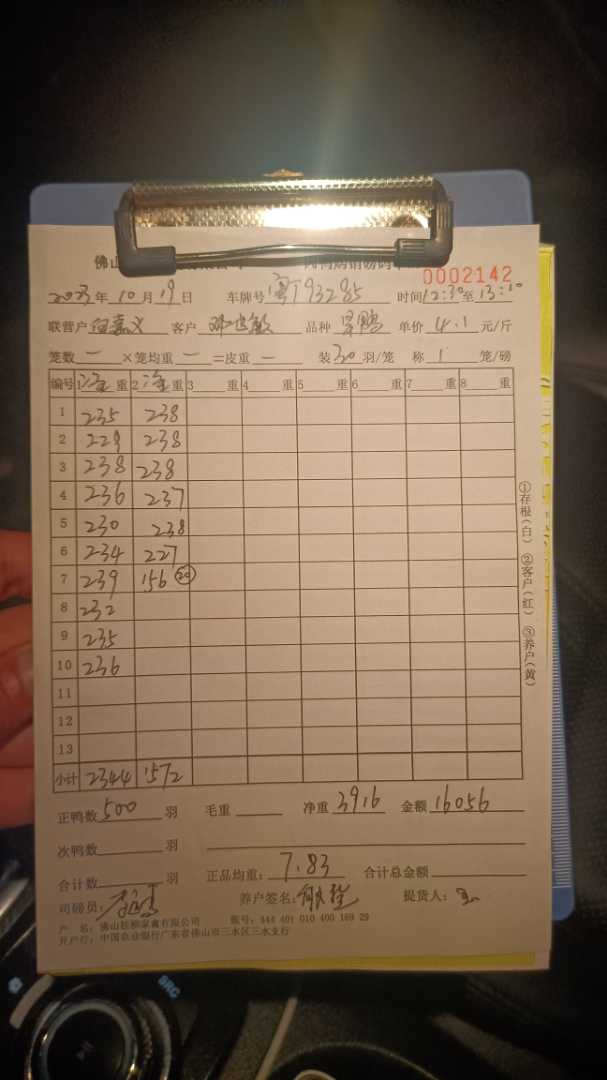 佛山
0002142
2023年 10月 19日 车牌号 粤T93285 时间 12:30至13:10
联营户 客户 邓世敏 品种 单价 4.1 元/斤
笼数 一 ×笼均重 一 =皮重 一 装30羽/笼 称 1 笼/磅
编号 1净重 2净重 3 重 4 重 5 重 6 重 7 重 8 重
1 235 238
2 229 238
3 238 238
4 236 237
5 230 238
6 234 227
7 239 156 (20)
8 232
9 235
10 236
11
12
13
小计 2344 1572
①存根(白) ②客户(红) ③养户(黄)
正鸭数 500 羽 毛重 净重 3916 金额 16056
次鸭数 羽
合计数 羽 正品均重: 7.83 合计总金额
司磅员: 养户签名: 提货人:
户 名: 佛山 家禽有限公司 账号: 444 401 010 400 169 29
开户行: 中国农业银行广东省佛山市三水区三水支行
SRC